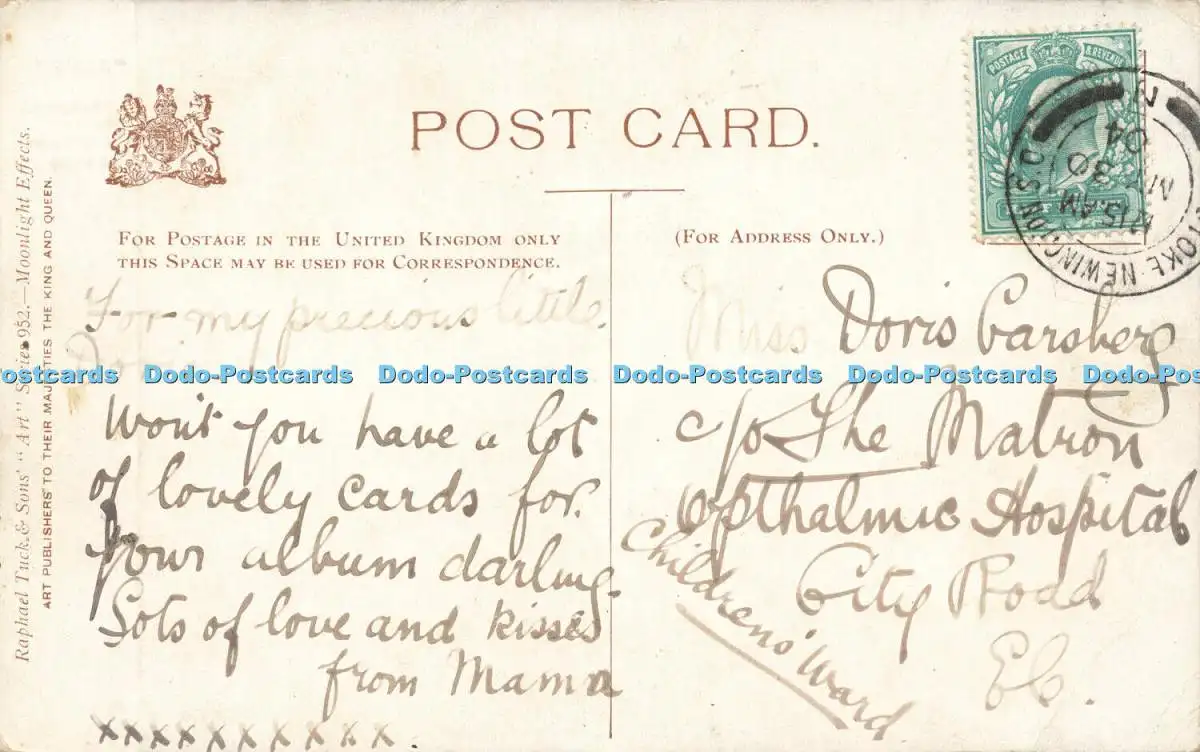 POST CARD.
FOR POSTAGE IN THE UNITED KINGDOM ONLY
THIS SPACE MAY BE USED FOR CORRESPONDENCE.
(FOR ADDRESS ONLY.)
Raphael Tuck & Sons' "Art" Series 952.—Moonlight Effects.
ART PUBLISHERS TO THEIR MAJESTIES THE KING AND QUEEN.
POSTAGE & REVENUE
STOKE-NEWINGTON S.O
15.AM
MY 30
04
N
For my precious little
Doris
Won't you have a lot
of lovely cards for
your album darling.
Lots of love and kisses
from Mama
xxxxxxxxxxx.
Miss Doris Garsberg
c/o The Matron
Opthalmic Hospital
City Road
EC.
Childrens' Ward
ostcards Dodo-Postcards Dodo-Postcards Dodo-Postcards Dodo-Postcards Dodo-Pos